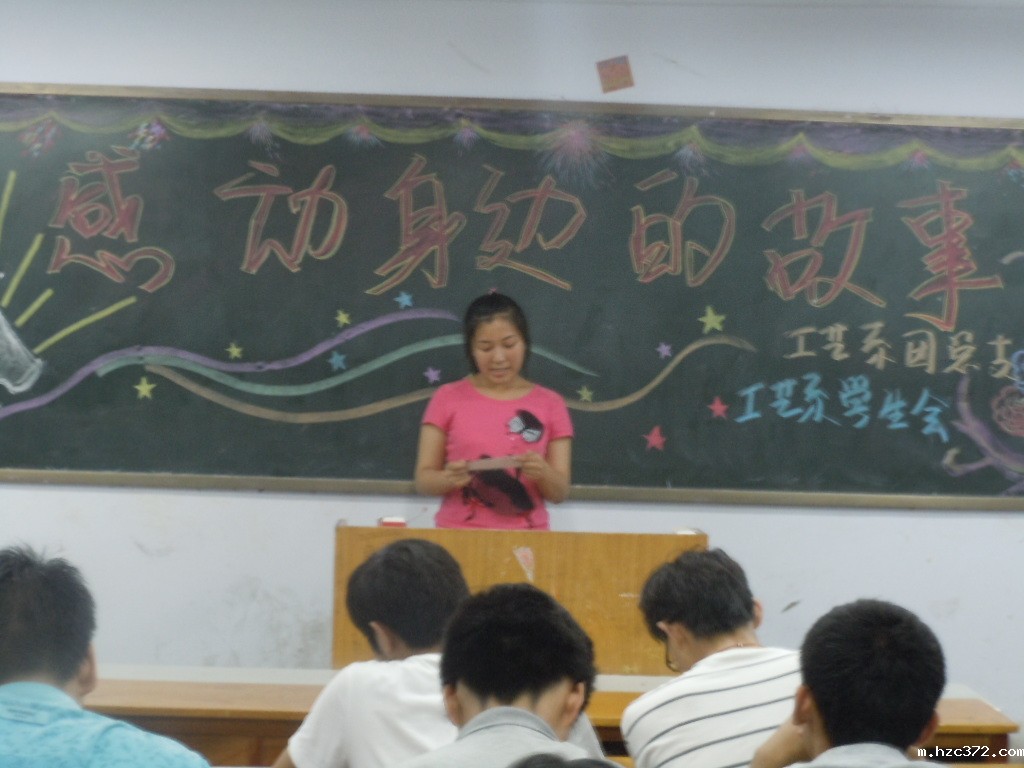 感动身边的故事
工艺系团总支
工艺系学生会
m.hzc372.com